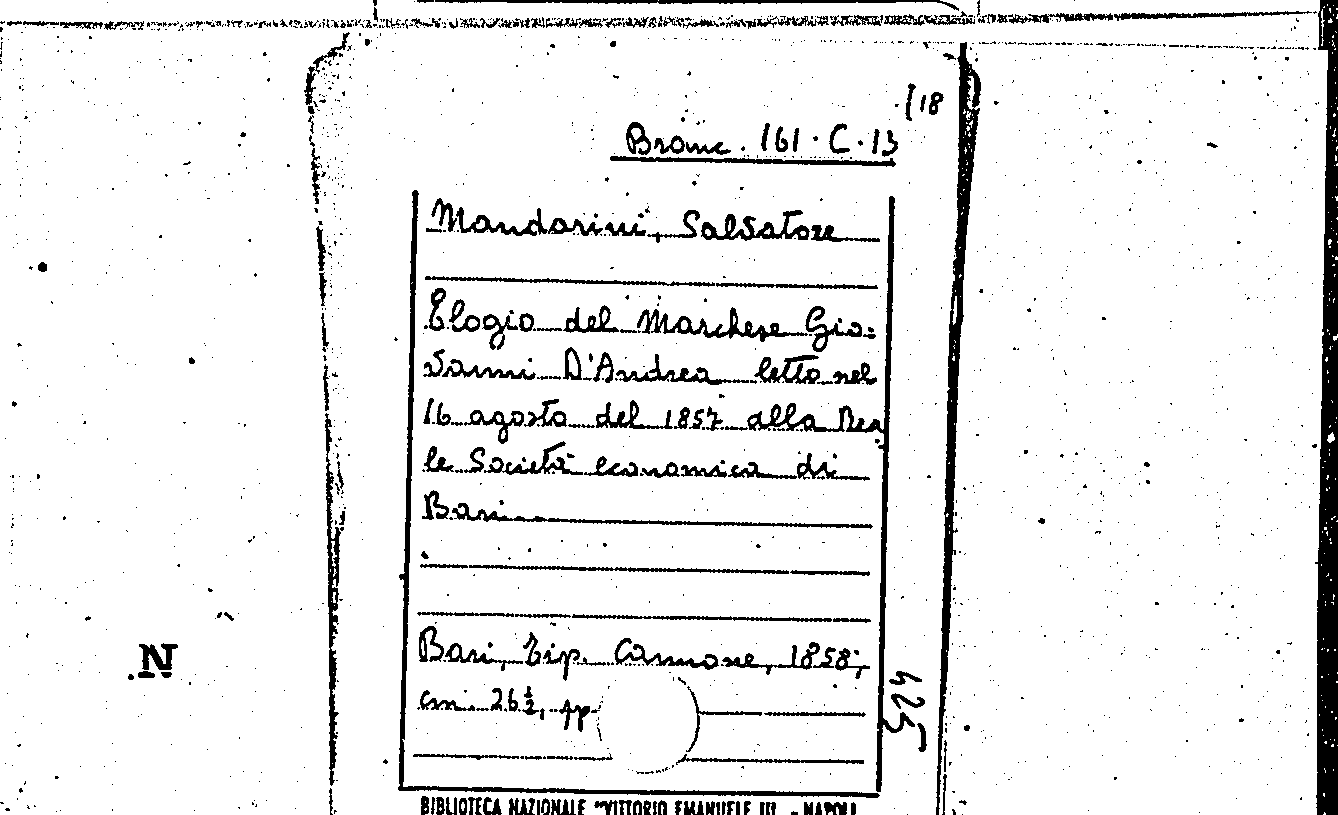 [18
Branc. 161. C. 13
Mandarini, Salvatore
Elogio del Marchese Gio=
vanni D'Andrea letto nel
16 agosto del 1857 alla Rea
le Società economica di
Bari.
Bari, Tip. Cannone, 1858;
cm. 26½, pp.
425
N
BIBLIOTECA NAZIONALE "VITTORIO EMANUELE III" - NAPOLI